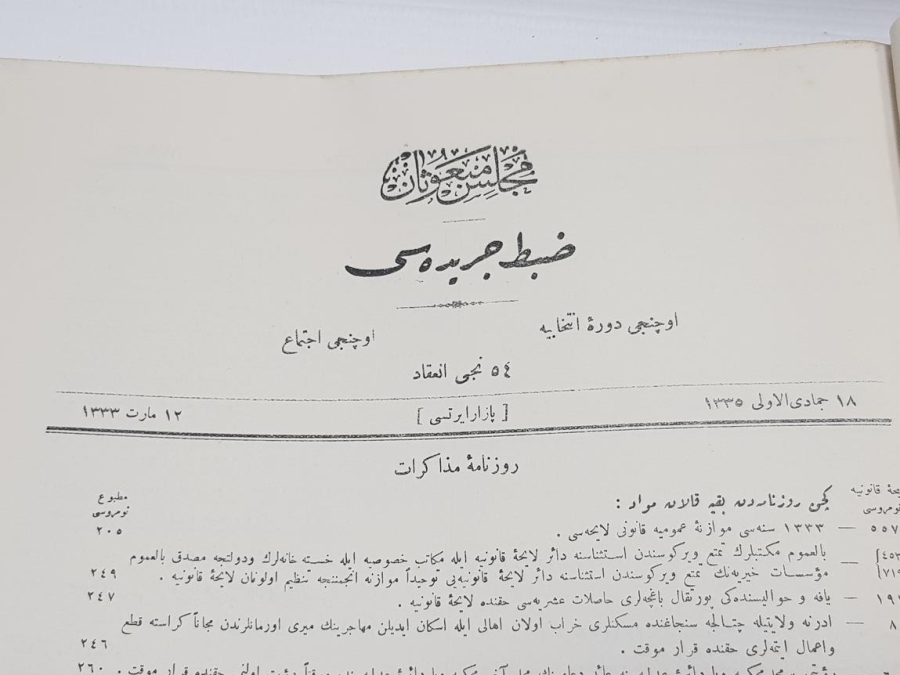 مجلس مبعوثان
ضبط جريده‌سى
اوچنجى دورۀ انتخابيه
اوچنجى اجتماع
٥٤ نجى انعقاد
١٨ جمادى الاولى ١٣٣٥
[ پازار ايرتسى ]
١٢ مارت ١٣٣٣
روزنامۀ مذاكرات
قانونيه
نومروسى
مطبوع
نومروسى
كچن روزنامه‌دن بقيه قالان مواد :
٥٥٧ — ١٣٣٣ سنه‌سى موازنۀ عموميه قانونى لايحه‌سى .
٢٠٥
بالعموم مكتبلرك تمتع ويركوسندن استثناسنه دائر لايحۀ قانونيه ايله مكاتب خصوصيه ايله خسته خانه‌لرك ودولتجه مصدق بالعموم
مؤسسات خيريه‌نك تمتع ويركوسندن استثناسنه دائر لايحۀ قانونيه‌يى توحيداً موازنه انجمننجه تنظيم اولونان لايحۀ قانونيه .
٢٤٩
— يافه و حواليسنده‌كى پورتقال باغچه‌لرى حاصلات عشريه‌سى حقنده لايحۀ قانونيه .
٢٤٧
— ادرنه ولايتيله چتالجه سنجاغنده مسكنلرى خراب اولان اهالى ايله اسكان ايديلن مهاجرينك ميرى اورمانلرندن مجاناً كراسته قطع
واعمال ايتمه‌لرى حقنده قرار موقت .
٢٤٦
٢٦٠